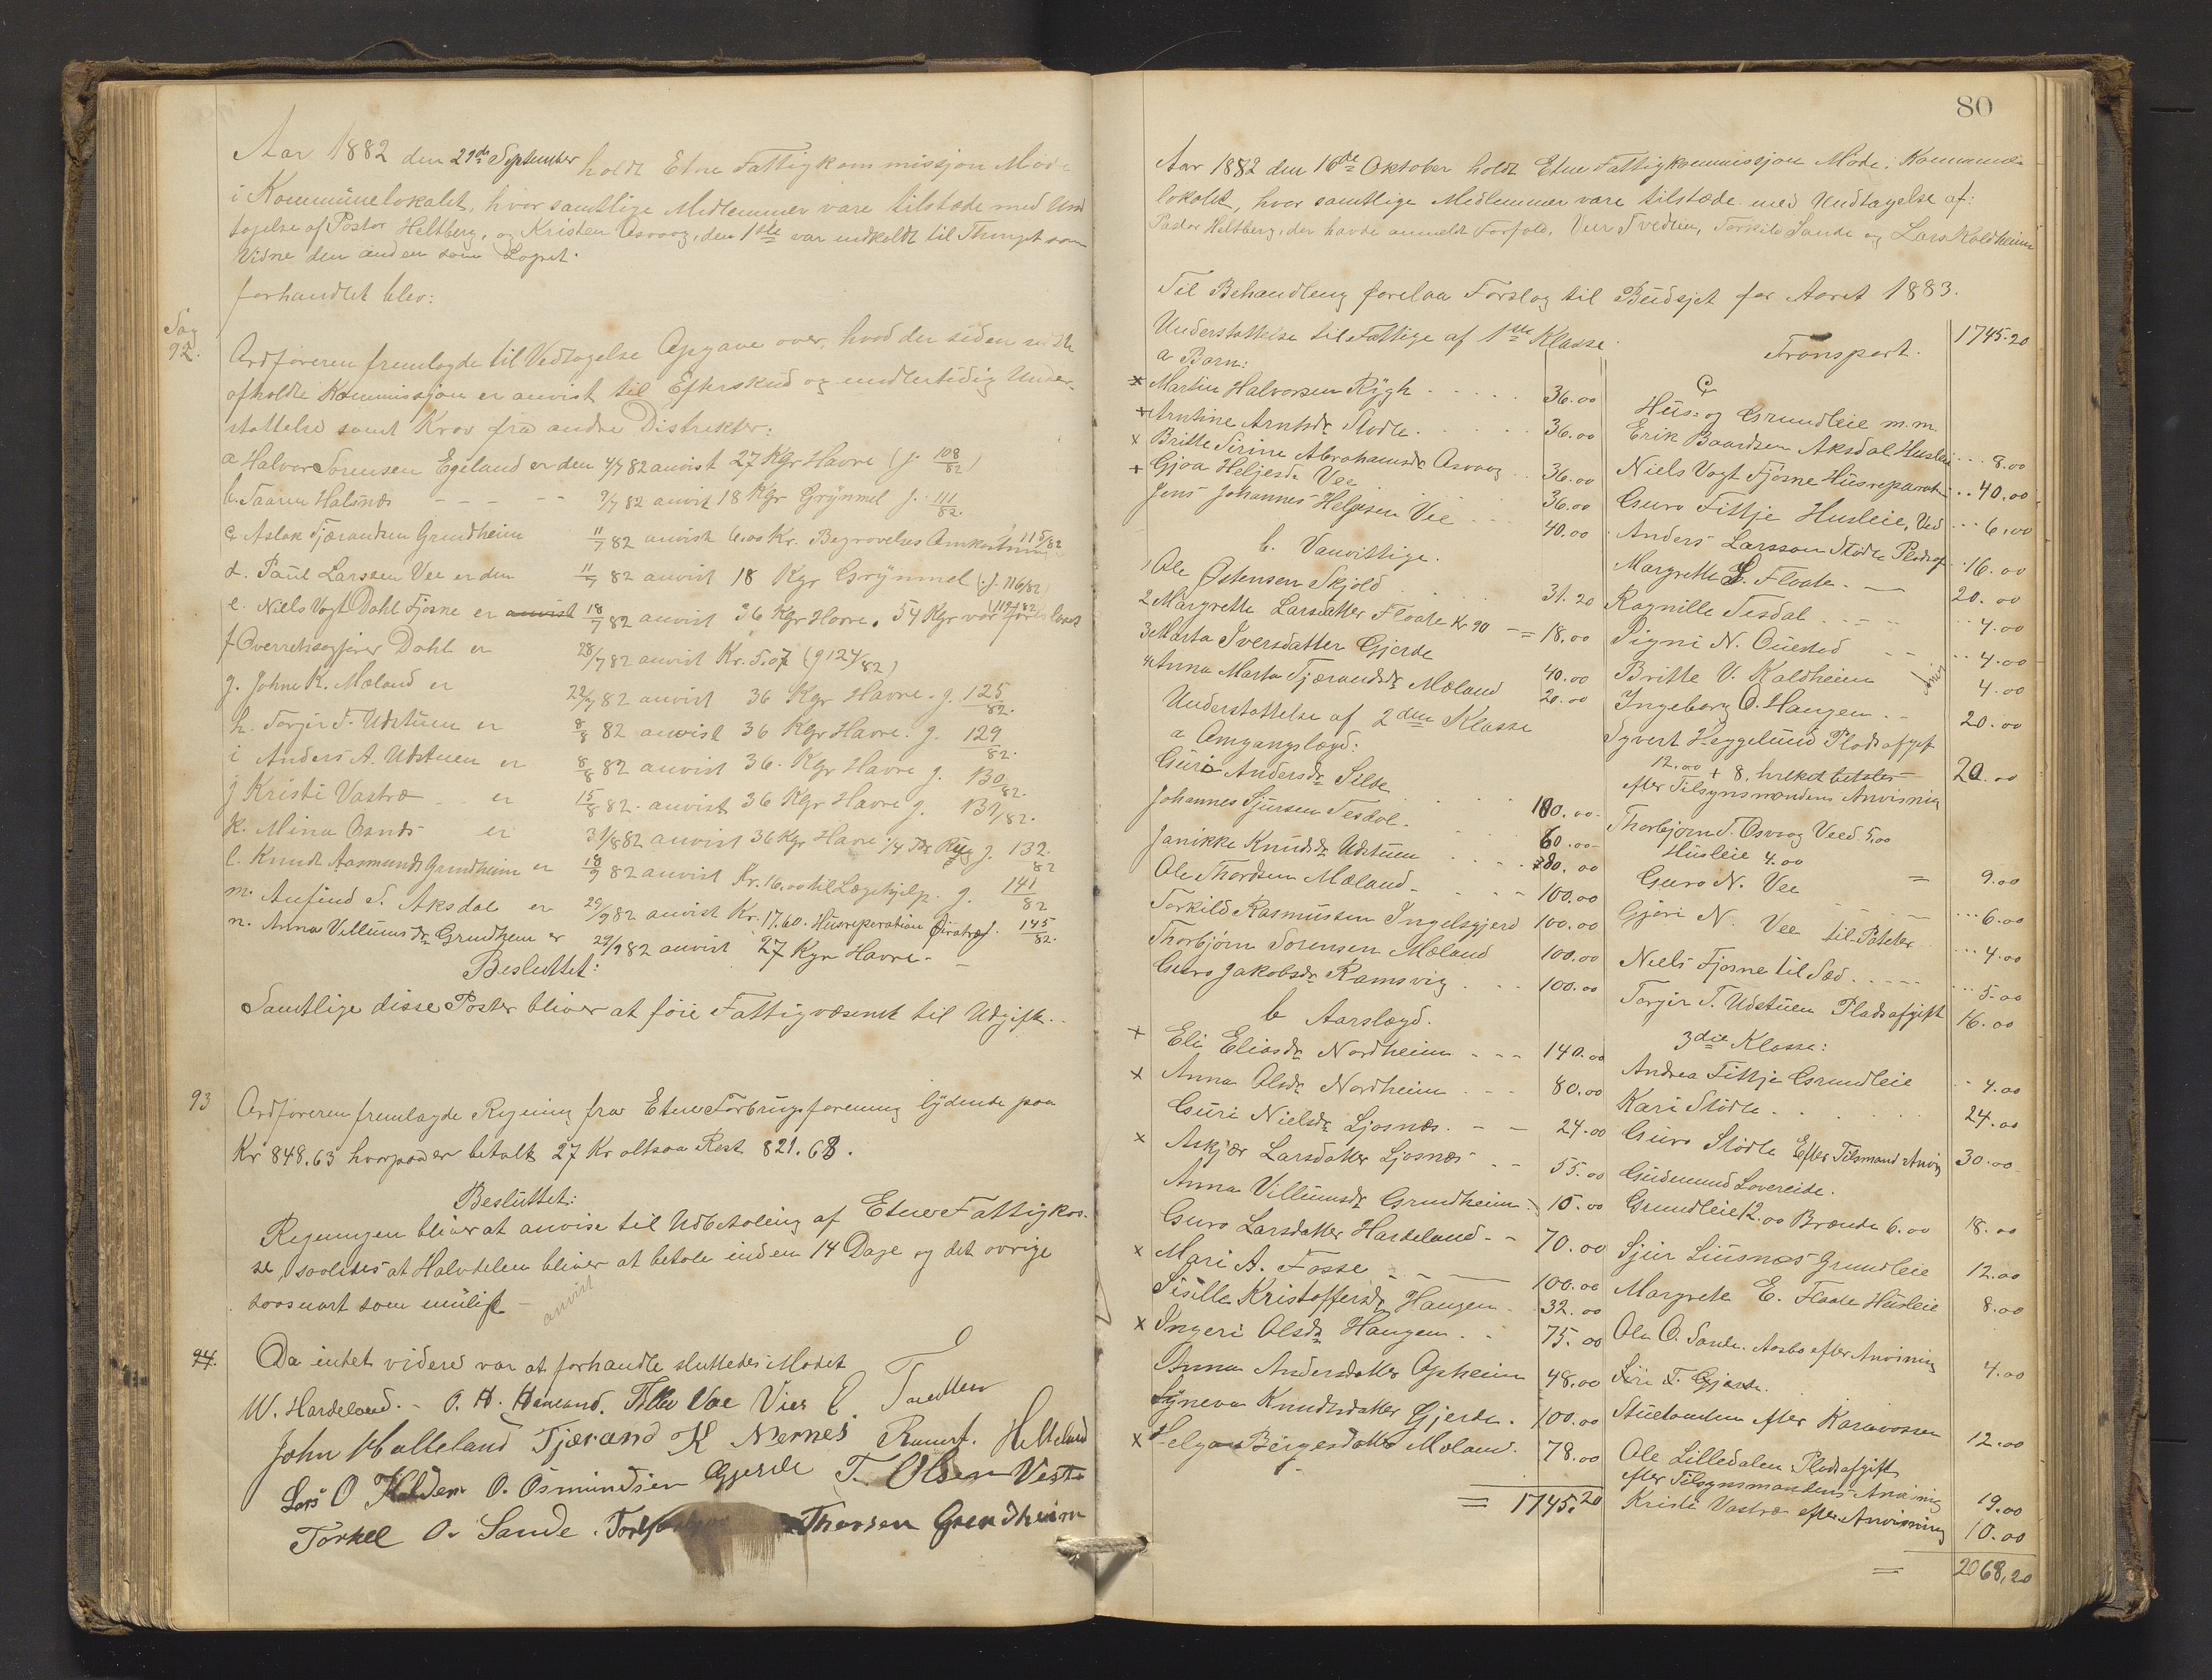 Aar 1882 den 29de September holdt Etne Fattigkommissjon Møde
i Kommünelokalet, hvor samtlige Medlemmer vare tilstæde med Und
tagelse af Pastor Heltberg, og Kristen Osvaag, den 1ste var indkaldt til Thinget som
Vidne den anden som Lagret.
forhandlet blev:
Sag
92.
Ordføreren fremlagde til Vedtagelse Opgave over, hvad der siden sidst
afholdte Kommissjon er anvist til Efterskud og midlertidig Under-
støttelse samt Krav fra andre Distrikter:
a Halvor Sørensen Egeland er den 4/7 82 anvist 27 Kgr Havre (j. 108/82)
b. Taaran Halsnæs - - - - 7/7 82 anvist 18 Kgr Grynmel j. 111/82.
c Aslak Tjærandsen Grindheim 11/7 82 anvist 6.00 Kr. Begravelses Omkostning 115/82
d. Paul Larssen Vee er den 11/7 82 anvist 18 Kgr Grynmel (j. 116/82)
e. Niels Vogt Dahl Fjøsne er anvist 18/7 82 anvist 36 Kgr Havre. 54 Kgr var (119/82)
f Overretsagfører Dahl er 28/7 82 anvist Kr. 5.07 (g 124/82)
g. Johne K. Mæland er 22/7 82 anvist 36 Kgr Havre. g. 125/82.
h. Torger T. Udstuen er 8/8 82 anvist 36 Kgr Havre. g. 129/82.
i Anders A. Udstuen er 8/8 82 anvist 36. Kgr Havre g. 130/82.
j Kristi Vastræ - er 15/8 82. anvist 36 Kgr Havre g. 131/82.
k. Mina er 31/8 82 anvist 36 Kgr Havre 1/4 Rug j. 132/82
l. Knudt Aasmunds Grindheim er 18/9 82 anvist Kr. 16.00 til Lægehjelp. g. 141/82
m. Anfind S. Aksdal er 29/9 82 anvist Kr. 17.60. Husreparation j. 145/82.
n. Anna Villumsdr Grindhem er 29/9 82 anvist 27 Kgr Havre. -
Besluttet:
Samtlige disse Poster bliver at føie Fattigvæsenet til Udgift.
93
Ordføreren fremlagde Regning fra Etne Forbrugsforening lydende paa
Kr 848.63 hvorpaa er betalt 27 Kr altsaa Rest 821.63.
Besluttet:
Regningen bliver at anvise til Udbetaling af Etne Fattigkas-
se, saaledes at Halvdelen bliver at betale inden 14 Dage og det øvrige
saasnart som muligt -
anvist
94.
Da intet videre var at forhandle sluttedes Mødet
W. Hardeland. - O. H. Hæland. Vee Vier E. Tvedten
John Halleland Tjærand K Nernes Rasmus. Helleland
Lars O Kaldem O. Osmundsen Gjerde T. Olsen Vestre
Torkel O. Sande. Thorsen Grendheim
80
Aar 1882 den 16de Oktober holdt Etne Fattigkommissjon Møde i Kommune-
lokalet, hvor samtlige Medlemmer vare tilstæde med Undtagelse af:
Pastor Heltberg, der havde anmeldt Forfald, Vier Tvedten, Torkild Sande og Lars Kaldheim
Til Behandling forelaa Forslag til Büdsjet for Aaret 1883.
Understøttelse til Fattige af 1ste Klasse.
a Børn:
x Martin Halvorsen Rygh . . . . . 36.00
x Arntine Arntsdr Stødle . . . . . 36.00
x Britte Serine Abrahamsdr Osvaag . . 36.00
x Gjøa Helgesdr Vee 36.00
Jens Johannes Helgesen Vee . . . 40.00
b. Vanvittige.
1 Ole Østensen Skjold . . . 31.20
2 Margrethe Larsdatter Floate Kr 90 - = 18.00
3 Marta Iversdatter Gjerde 40.00
4 Anna Marta Tjærandsdr Mæland 20.00
Understøttelse af 2den Klasse
a Omgangslægd:
Guri Andersdr Silde . . . 100.00
Johannes Sjursen Tesdal . . . 60.00
Janikke Knudsdr Udstuen . . . 80.00
Ole Thordsen Mæland - - - - 100.00
Torkild Rasmussen Ingelsgjerd 100.00
Thorbjørn Sørensen Mæland 100.00
Guro Jakobsdr Ramsvig . . . 100.00
b Aarslægd.
x Eli Eliasdr Nordheim - - - 140.00
x Anna Olsdr Nordheim - - - 80.00
Guri Nielsdr Ljosnæs. - - 24.00
x Askjær Larsdatter Ljosnæs - - 55.00
Anna Villumsdr Grindheim. 15.00
Guro Larsdatter Hardeland - - 70.00
x Mari A. Fosse - - - 100.00
Sisille Kristoffersdr Haugen - 32.00
x Ingeri Olsdr Haugen. - 75.00
Anna Andersdatter Opheim 48.00
Syneva Knudtsdatter Gjerde. 100.00
x Helga Børgesdatter Mæland. 78.00
= 1745.20
Transport. 1745.20
c
Hüs- og Grundleie m.m.
Erik Baardsen Aksdal Husleie . . . 8.00
Niels Vogt Fjøsne Hüsreparat . . 40.00
Guro Fittje Husleie, Ved . . . 6.00
Anders Larsson Stødle Pladsaf . . 16.00
Margrethe L. Floate - - 20.00
Ragnille Tesdal . . . 4.00
Signi N. Ouestad . . . 4.00
Britte V. Kaldheim - 4.00
Ingeborg O. Haugen. - 20.00
Syvert Heggelund Pladsafgift
12.00 + 8. hvilket betales 20.00
efter Tilsynsmandens Anvisning
Thorbjørn T. Osvaag Veed. 5,00
Husleie 4.00 = 9.00
Guro N. Vee - - - . . . 6.00
Gjøri N. Vee til Poteter . . . 4.00
Niels Fjøsne til Sæd . . . . . 5.00
Torger T. Udstuen Pladsafgift 16.00
3die Klasse:
Andrea Fittje Grundleie . . 4.00
Kari Stødle . . . . . 24.00
Guro Stødle Efter Tilsmand Anvis 30.00
Gudmund Lovereide.
Grundleie 12.00 Brænde 6.00 18.00
Sjur Liusnæs Grundleie 12.00
Margrete E. Floate Husleie 8.00
Ole O. Sande. Aasbo efter Anvisning 4.00
Siri T. Gjærde.
efter 12.00
Ole Lilledalen Pladsafgift
efter Tilsynsmandens Anvisning 19.00
Kristi Vastræ efter Anvisning 10.00
= 2068,20